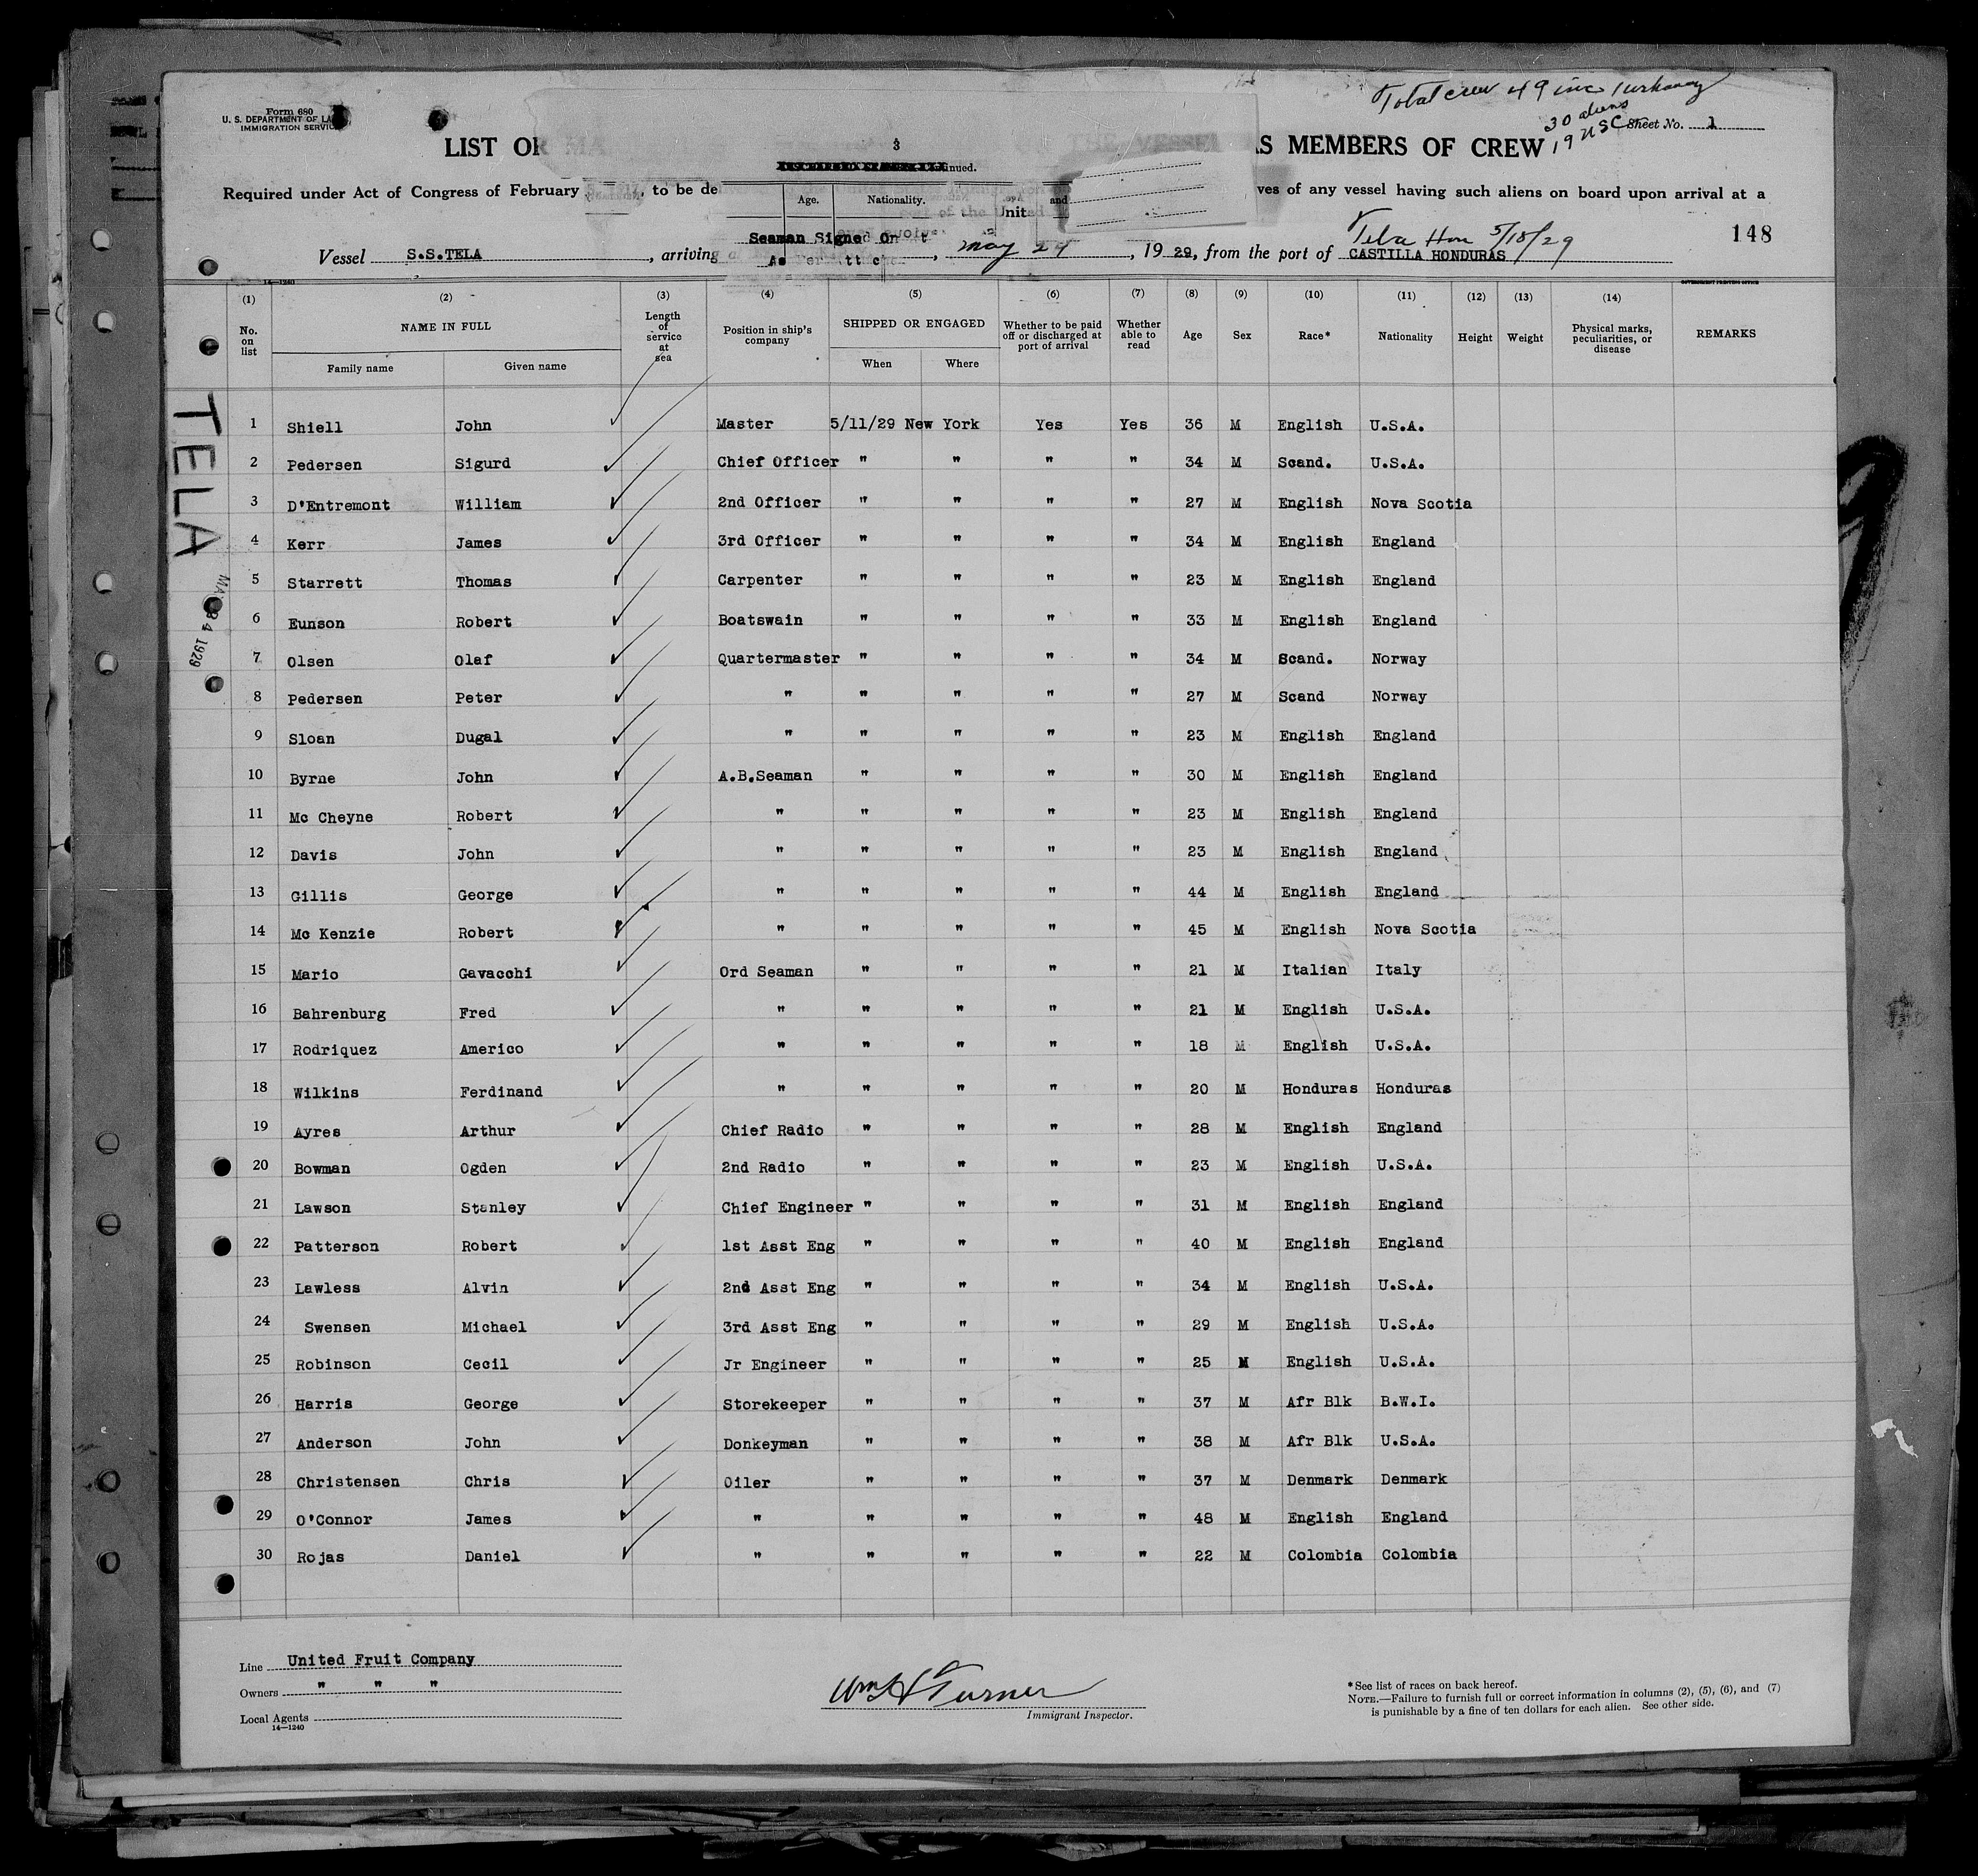 Total crew 49 inc 1 workaway
30 aliens
19 USC
Form 680
U. S. DEPARTMENT OF LA
IMMIGRATION SERVICE
Sheet No. 1
3
LIST OF MA THE VESSEL AS MEMBERS OF CREW
inued.
Required under Act of Congress of February , to be de ves of any vessel having such aliens on board upon arrival at a
Age. Nationality. and
of the United
148
Seaman Signed On
Tela Hon 5/18/29
Vessel S.S.TELA , arriving , May 24 , 19 29, from the port of CASTILLA HONDURAS
As Per Attach
14—1240
GOVERNMENT PRINTING OFFICE
(1) (2) (3) (4) (5) (6) (7) (8) (9) (10) (11) (12) (13) (14)
No. on list NAME IN FULL Length of service at sea Position in ship's company SHIPPED OR ENGAGED Whether to be paid off or discharged at port of arrival Whether able to read Age Sex Race* Nationality Height Weight Physical marks, peculiarities, or disease REMARKS
Family name Given name When Where
TELA
MAY 24 1929
1 Shiell John Master 5/11/29 New York Yes Yes 36 M English U.S.A.
2 Pedersen Sigurd Chief Officer " " " " 34 M Scand. U.S.A.
3 D'Entremont William 2nd Officer " " " " 27 M English Nova Scotia
4 Kerr James 3rd Officer " " " " 34 M English England
5 Starrett Thomas Carpenter " " " " 23 M English England
6 Eunson Robert Boatswain " " " " 33 M English England
7 Olsen Olaf Quartermaster " " " " 34 M Scand. Norway
8 Pedersen Peter " " " " " 27 M Scand Norway
9 Sloan Dugal " " " " " 23 M English England
10 Byrne John A.B.Seaman " " " " 30 M English England
11 Mc Cheyne Robert " " " " " 23 M English England
12 Davis John " " " " " 23 M English England
13 Gillis George " " " " " 44 M English England
14 Mc Kenzie Robert " " " " " 45 M English Nova Scotia
15 Mario Gavacchi Ord Seaman " " " " 21 M Italian Italy
16 Bahrenburg Fred " " " " " 21 M English U.S.A.
17 Rodriquez Americo " " " " " 18 M English U.S.A.
18 Wilkins Ferdinand " " " " " 20 M Honduras Honduras
19 Ayres Arthur Chief Radio " " " " 28 M English England
20 Bowman Ogden 2nd Radio " " " " 23 M English U.S.A.
21 Lawson Stanley Chief Engineer " " " " 31 M English England
22 Patterson Robert 1st Asst Eng " " " " 40 M English England
23 Lawless Alvin 2nd Asst Eng " " " " 34 M English U.S.A.
24 Swensen Michael 3rd Asst Eng " " " " 29 M English U.S.A.
25 Robinson Cecil Jr Engineer " " " " 25 M English U.S.A.
26 Harris George Storekeeper " " " " 37 M Afr Blk B.W.I.
27 Anderson John Donkeyman " " " " 38 M Afr Blk U.S.A.
28 Christensen Chris Oiler " " " " 37 M Denmark Denmark
29 O'Connor James " " " " " 48 M English England
30 Rojas Daniel " " " " " 22 M Colombia Colombia
Line United Fruit Company
Owners " " "
Local Agents
14—1240
Wm H Turner
Immigrant Inspector.
*See list of races on back hereof.
NOTE.—Failure to furnish full or correct information in columns (2), (5), (6), and (7)
is punishable by a fine of ten dollars for each alien. See other side.